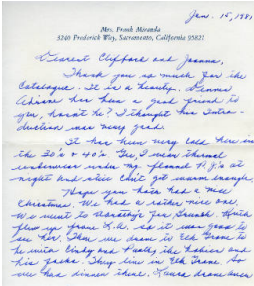 Jan. 15, 1981
Mrs. Frank Miranda
3240 Frederick Way, Sacramento, California 95821
Dearest Clifford and Joanna,
Thank you so much for the
Catalogue. It is a beauty.
Adams has been a good friend to
you, hasn't he? I thought his Intro-
duction was very good.
It has been very cold here in
the 30's & 40's. I wear thermal
underwear under my flannel P.J.'s at
night and still can't get warm enough.
Hope you both had a nice
Christmas. We had a rather nice one.
We went to for brunch.
flew up from L.A. so it was good to
see her. Then we drove to Elk Grove to
be with Cindy and and
his folks. They live in Elk Grove So
we had dinner there. drove